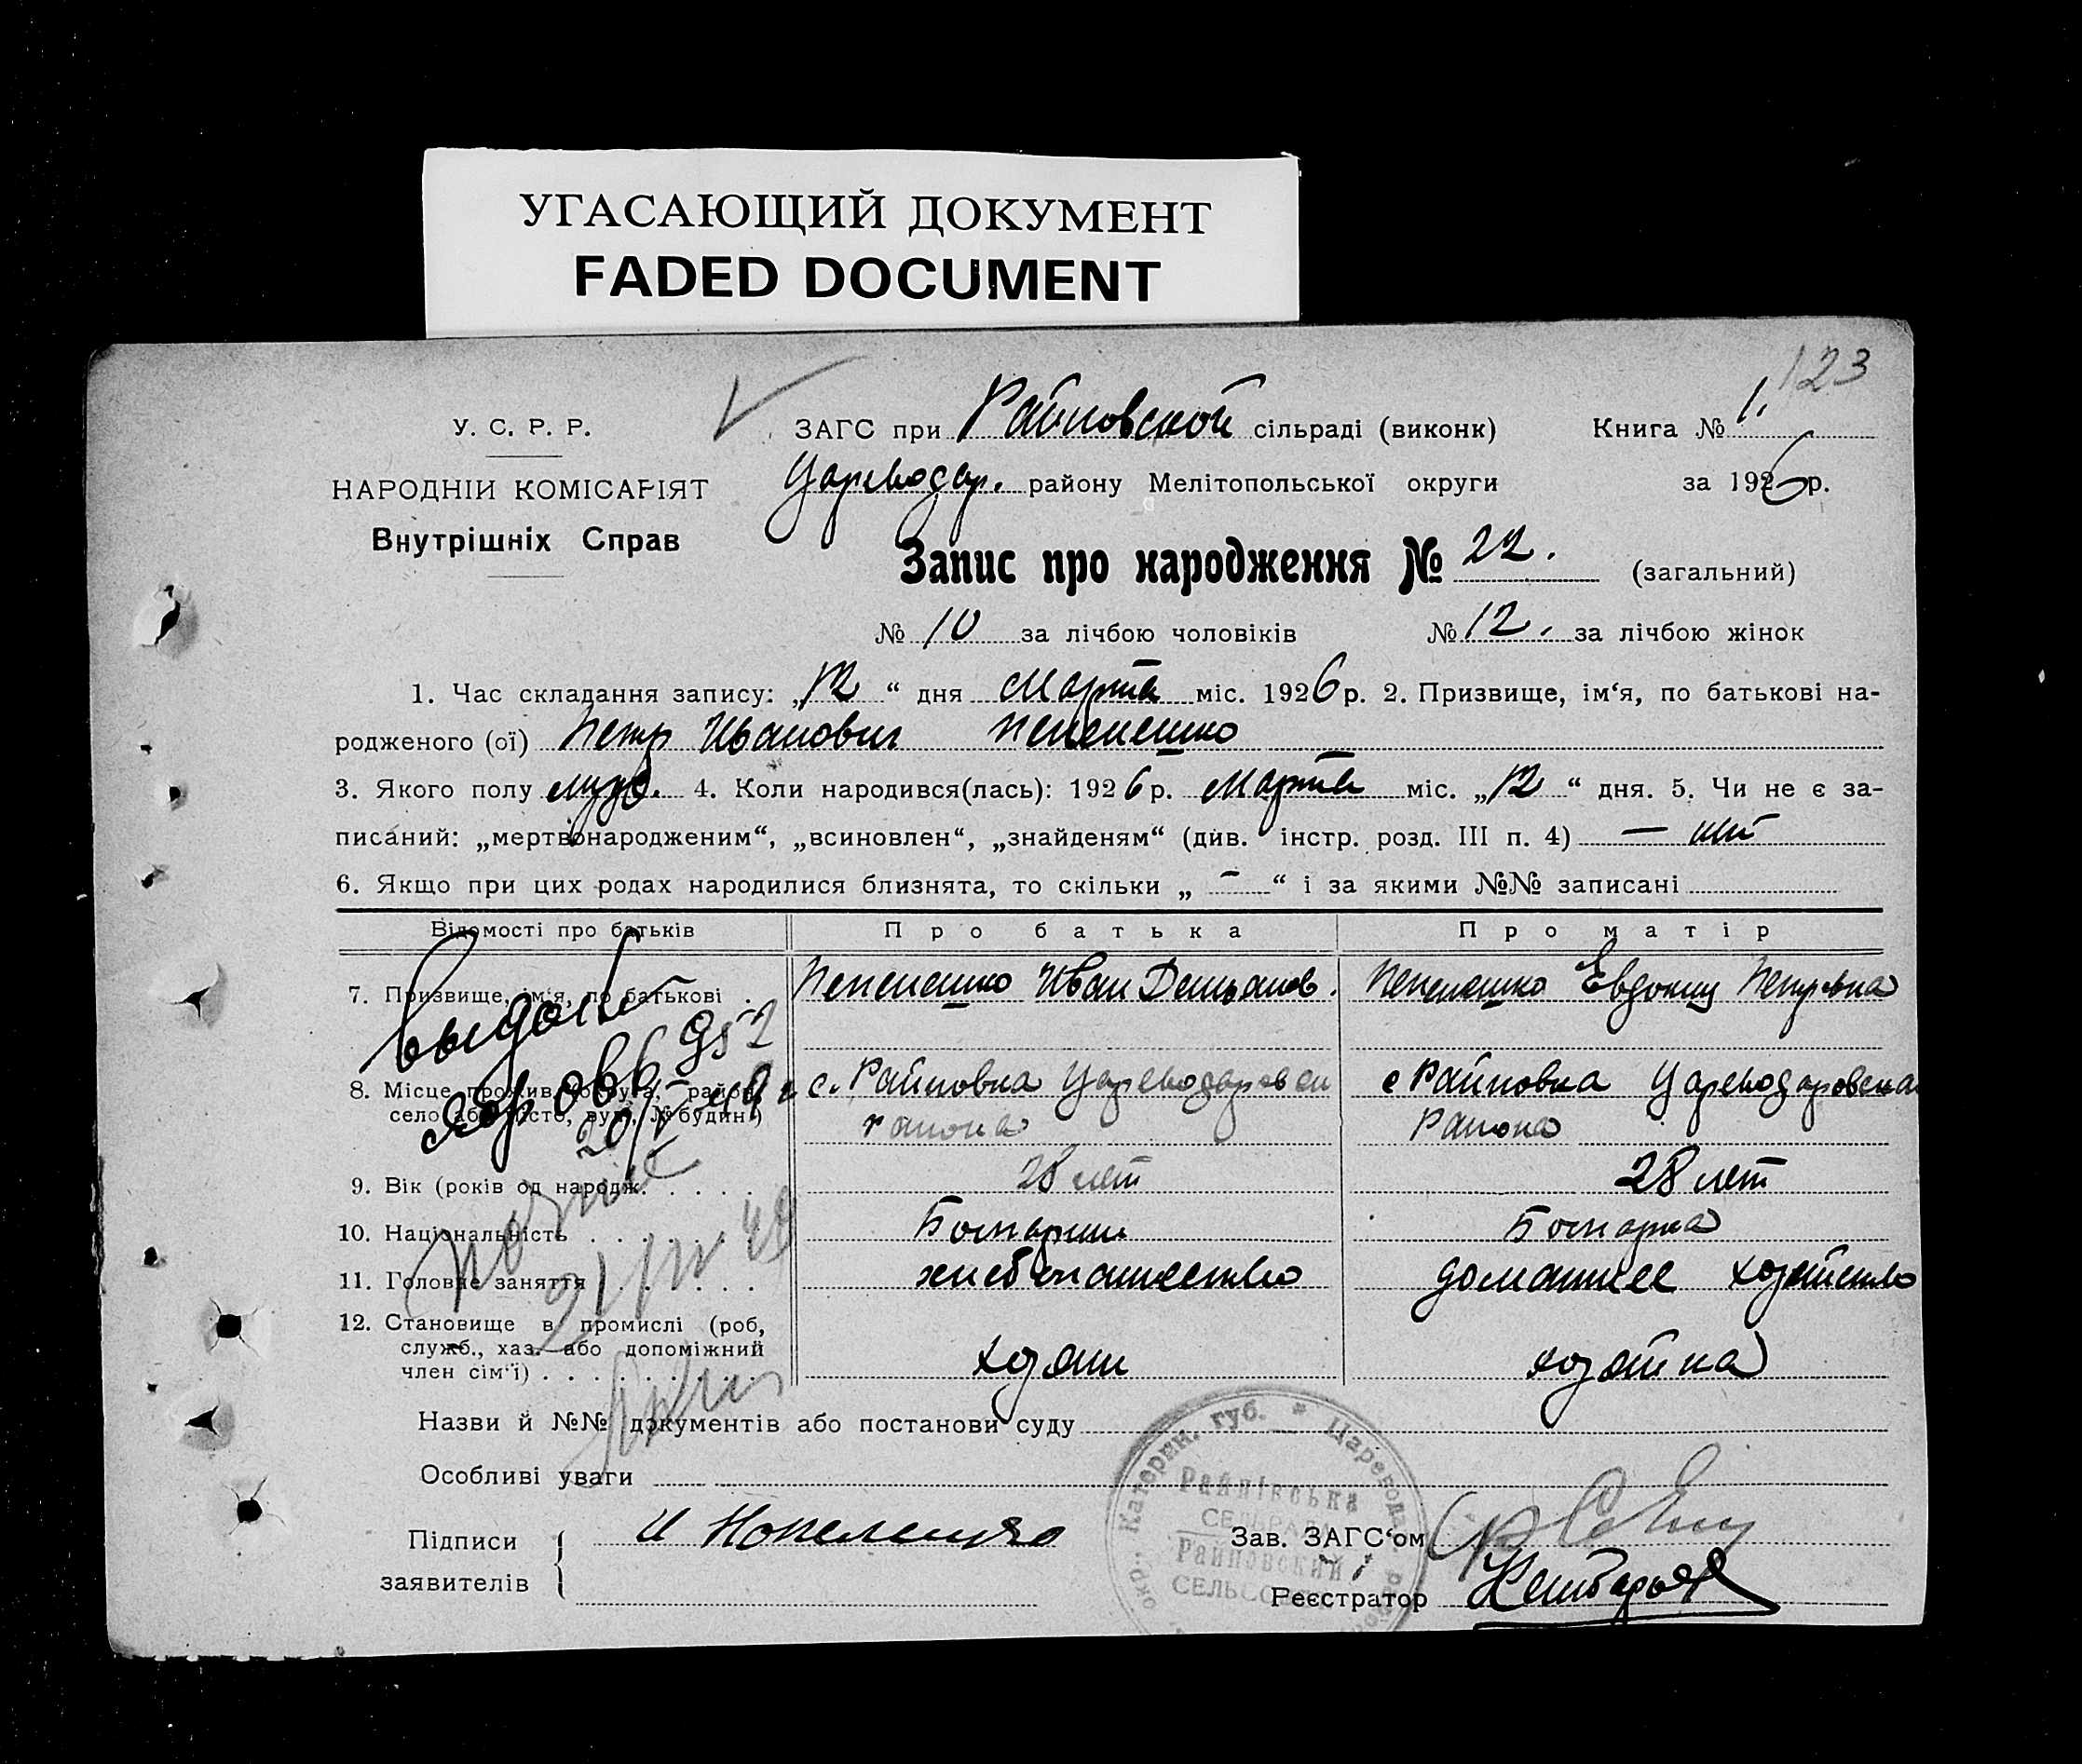 УГАСАЮЩИЙ ДОКУМЕНТ
FADED DOCUMENT
123
У. С. Р. Р.
НАРОДНІЙ КОМІСАРІЯТ
Внутрішніх Справ
ЗАГС при Райновской сільраді (виконк) Книга № 1.
Цареводар. району Мелітопольської округи за 1926 р.
Запис про народження № 22. (загальний)
№ 10 за лічбою чоловіків № 12. за лічбою жінок
1. Час складання запису: „12“ дня Марта міс. 1926 р. 2. Призвище, ім‘я, по батькові на-
родженого (ої) Петр Иванович Пепелешко
3. Якого полу муж. 4. Коли народився(лась): 1926 р. Марта міс. „12“ дня. 5. Чи не є за-
писаний: „мертвонародженим“, „всиновлен“, „знайденям“ (див. інстр. розд. III п. 4) — нет
6. Якщо при цих родах народилися близнята, то скільки „ - “ і за якими №№ записані
Відомості про батьків Про батька Про матір
7. Призвище, ім‘я, по батькові . Пепелешко Иван Демьянов. Пепелешко Евдокия Петровна
8. Місце прожив. (округа, район, с. Райновка Цареводаровск с Райновка Цареводаровска
село або місто, вул., № будин.) района района
9. Вік (років од народж. . . . . 28 лет 28 лет
10. Національність . . . . . . Болгарин Болгарка
11. Головне заняття . . . . . . хлебопашество домашнее хозяйство
12. Становище в промислі (роб,
служб., хаз. або допоміжний
член сім‘ї) . . . . . . . . . хозяин хозяйка
Выдано
Назви й №№ документів або постанови суду
Особливі уваги
Підписи
заявителів
Зав. ЗАГС‘ом
Реєстратор
Катерин. губ. * Цареводар
Райнівська
СЕЛЬРАДА
Райновский